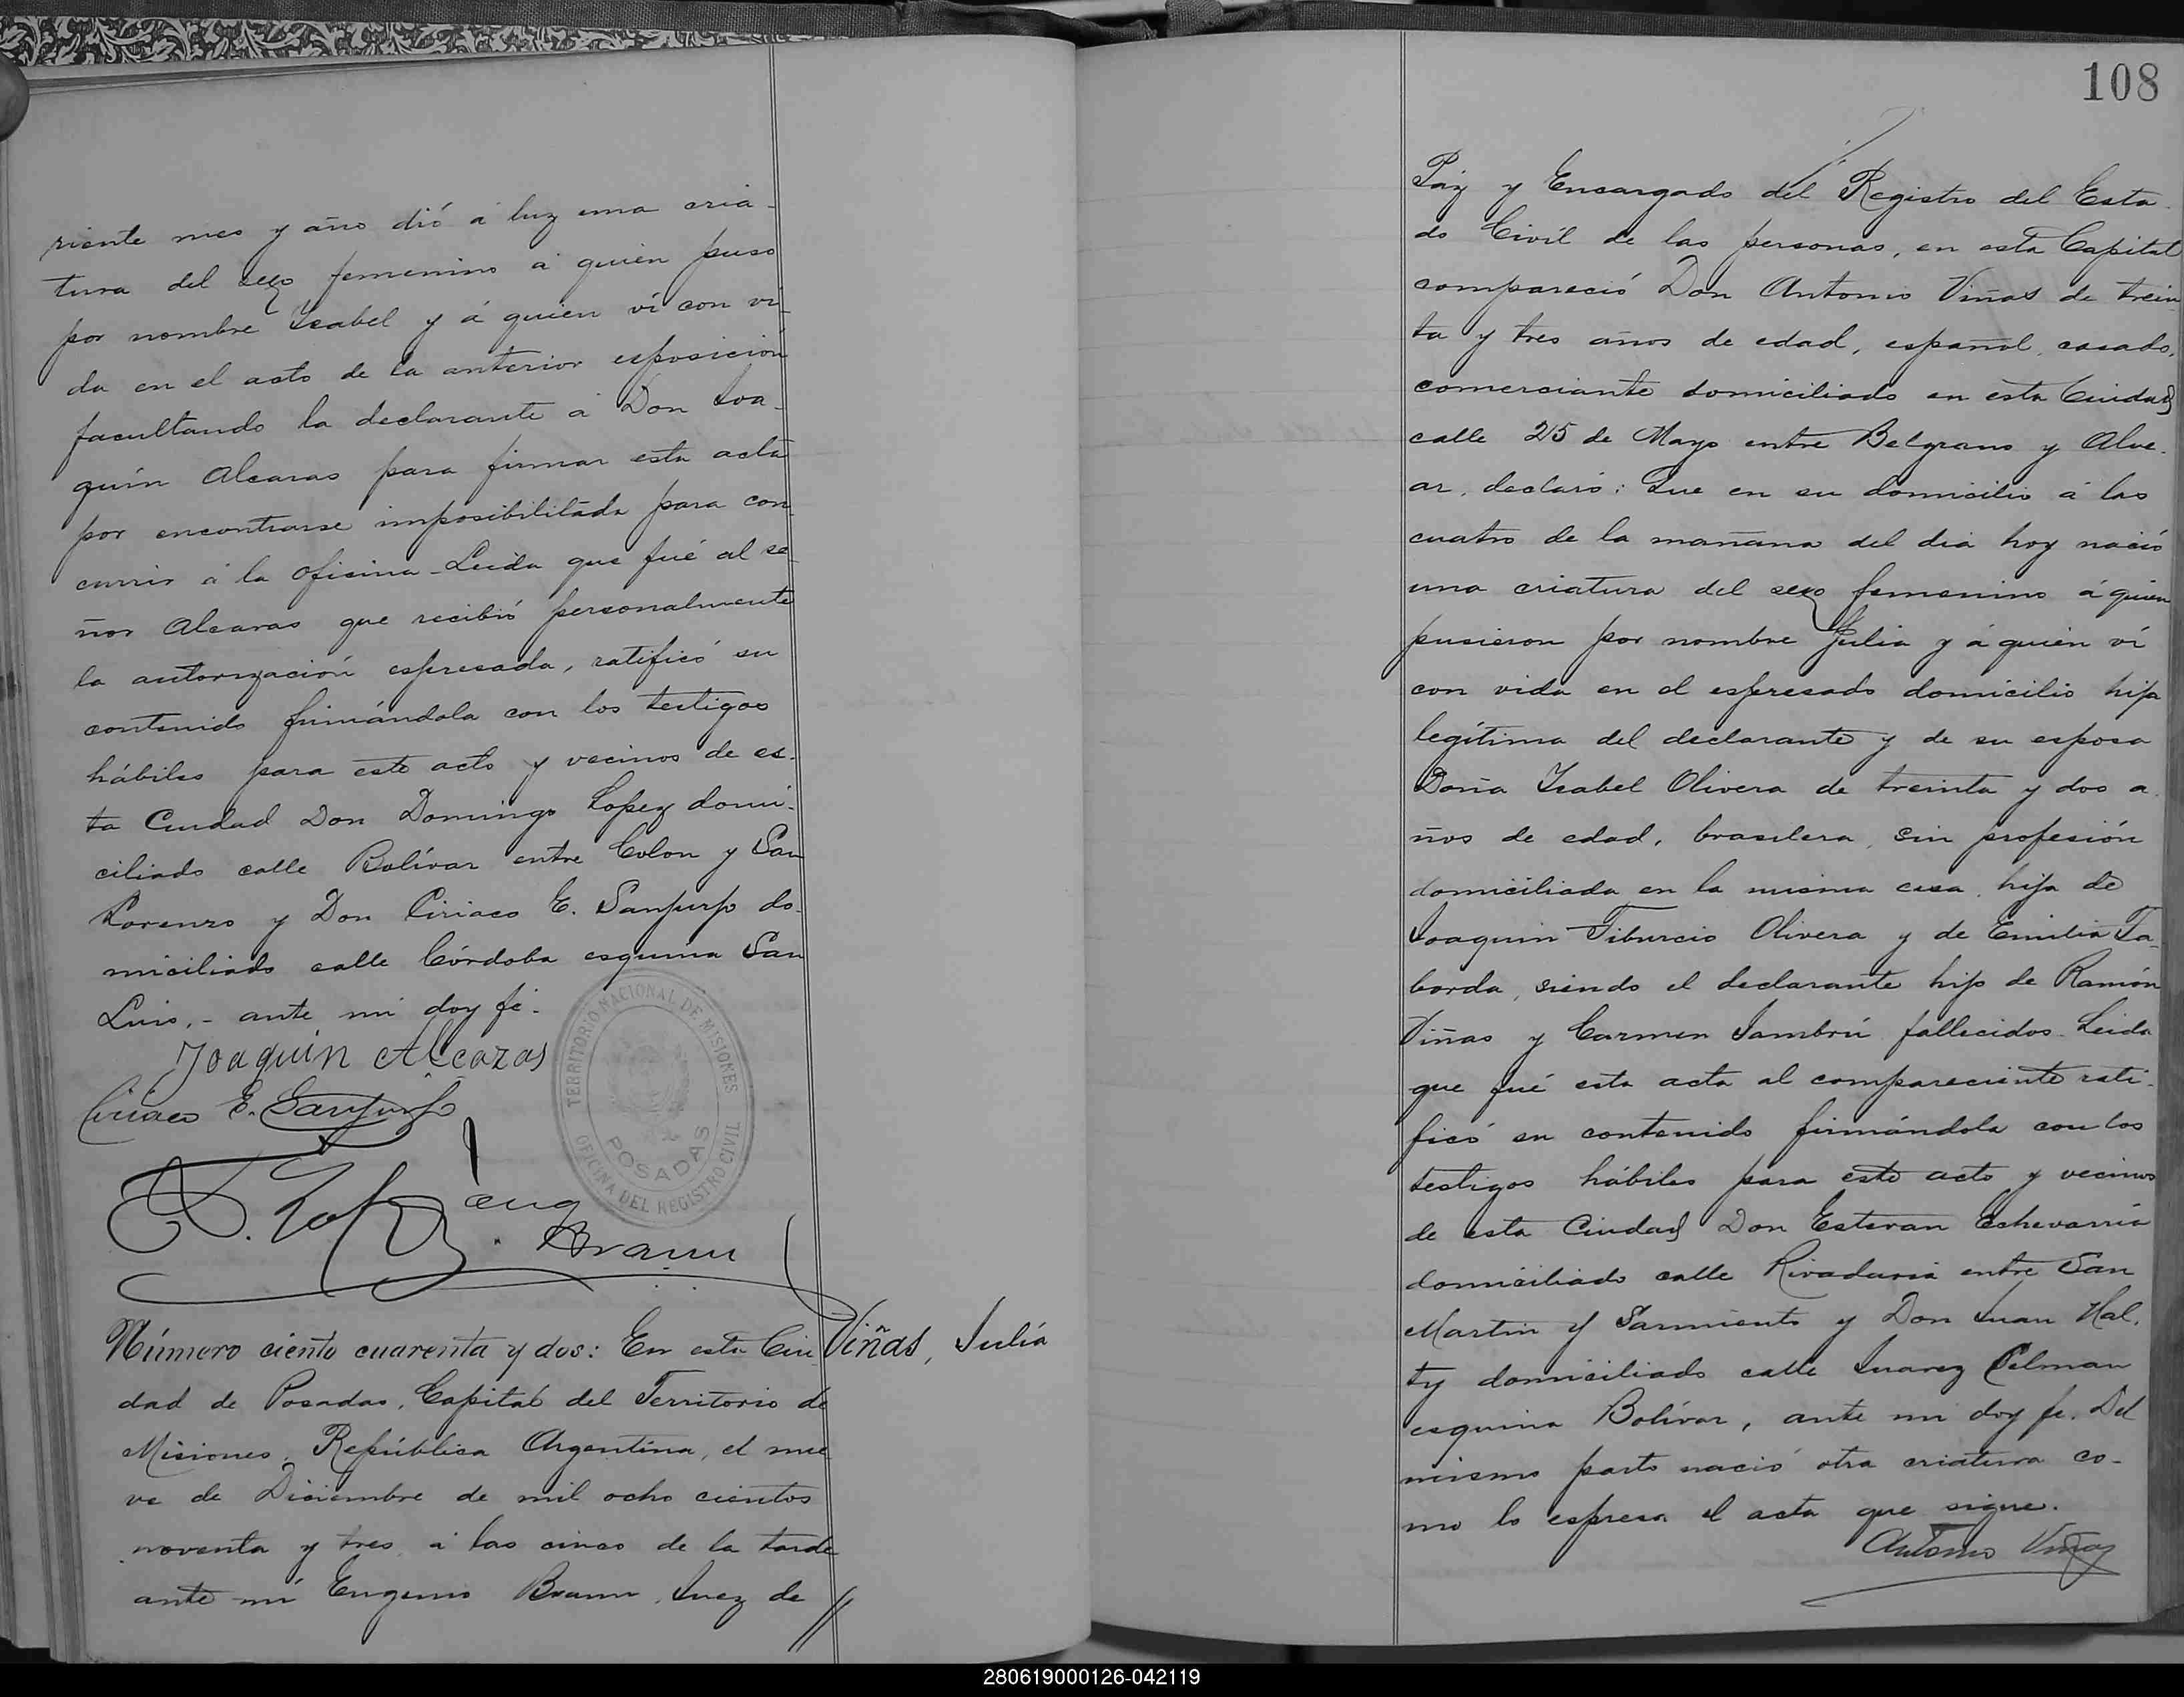 riente mes y año dió á luz una cria-
tura del sexo femenino á quien puso
por nombre Isabel y á quien ví con vi-
da en el acto de la anterior esposición
facultando la declarante á Don Joa-
quín Alcaras para firmar esta acta
por encontrarse imposibilitada para con-
currir á la oficina - Leida que fué al se-
ñor Alcaras que recibió personalmente
la autorización espresada, ratificó su
contenido firmándola con los testigos
hábiles para este acto y vecinos de es-
ta Ciudad Don Domingo Lopez domi-
ciliado calle Bolívar entre Colon y San
Lorenzo y Don Ciriaco E. Sanjurjo do-
miciliado calle Córdoba esquina San
Luis, - ante mi doy fé -
Joaquín Alcazas
Ciriaco E. Sanjurjo
TERRITORIO NACIONAL DE MISIONES
POSADAS
OFICINA DEL REGISTRO CIVIL
Eug
Braun
Número ciento cuarenta y dos: En esta Ciu
Viñas, Julia
dad de Posadas, Capital del Territorio de
Misiones, República Argentina, el nue
ve de Diciembre de mil ocho cientos
noventa y tres á las cinco de la tarde
ante mí Eugenio Braun, Juez de //
108
Páz y Encargado del Registro del Esta-
do Civíl de las personas, en esta Capital
compareció Don Antonio Viñas de trein-
ta y tres años de edad, español, casado,
comerciante domiciliado en esta Ciudad
calle 25 de Mayo entre Belgrano y Alve-
ar, declaró: Que en su domicilio á las
cuatro de la mañana del dia hoy nació
una criatura del sexo femenino á quien
pusieron por nombre Julia y á quien ví
con vida en el espresado domicilio hija
legítima del declarante y de su esposa
Doña Isabel Olivera de treinta y dos a-
ños de edad, brasilera, sin profesión
domiciliada en la misma casa, hija de
Joaquin Tiburcio Olivera y de Emilia Ta-
borda, siendo el declarante hijo de Ramón
Viñas y Carmen Jambrú fallecidos. Leida
que fué esta acta al compareciente rati-
ficó su contenido firmándola con los
testigos hábiles para este acto y vecinos
de esta Ciudad Don Estevan Echevarria
domiciliado calle Rivadavia entre San
Martin y Sarmiento y Don Juan Hal-
ty domiciliado calle Juarez Celman
esquina Bolívar, ante mi doy fe. Del
mismo parto nació otra criatura co-
mo lo espresa el acta que sigue.
Antonio Viñas
280619000126-042119